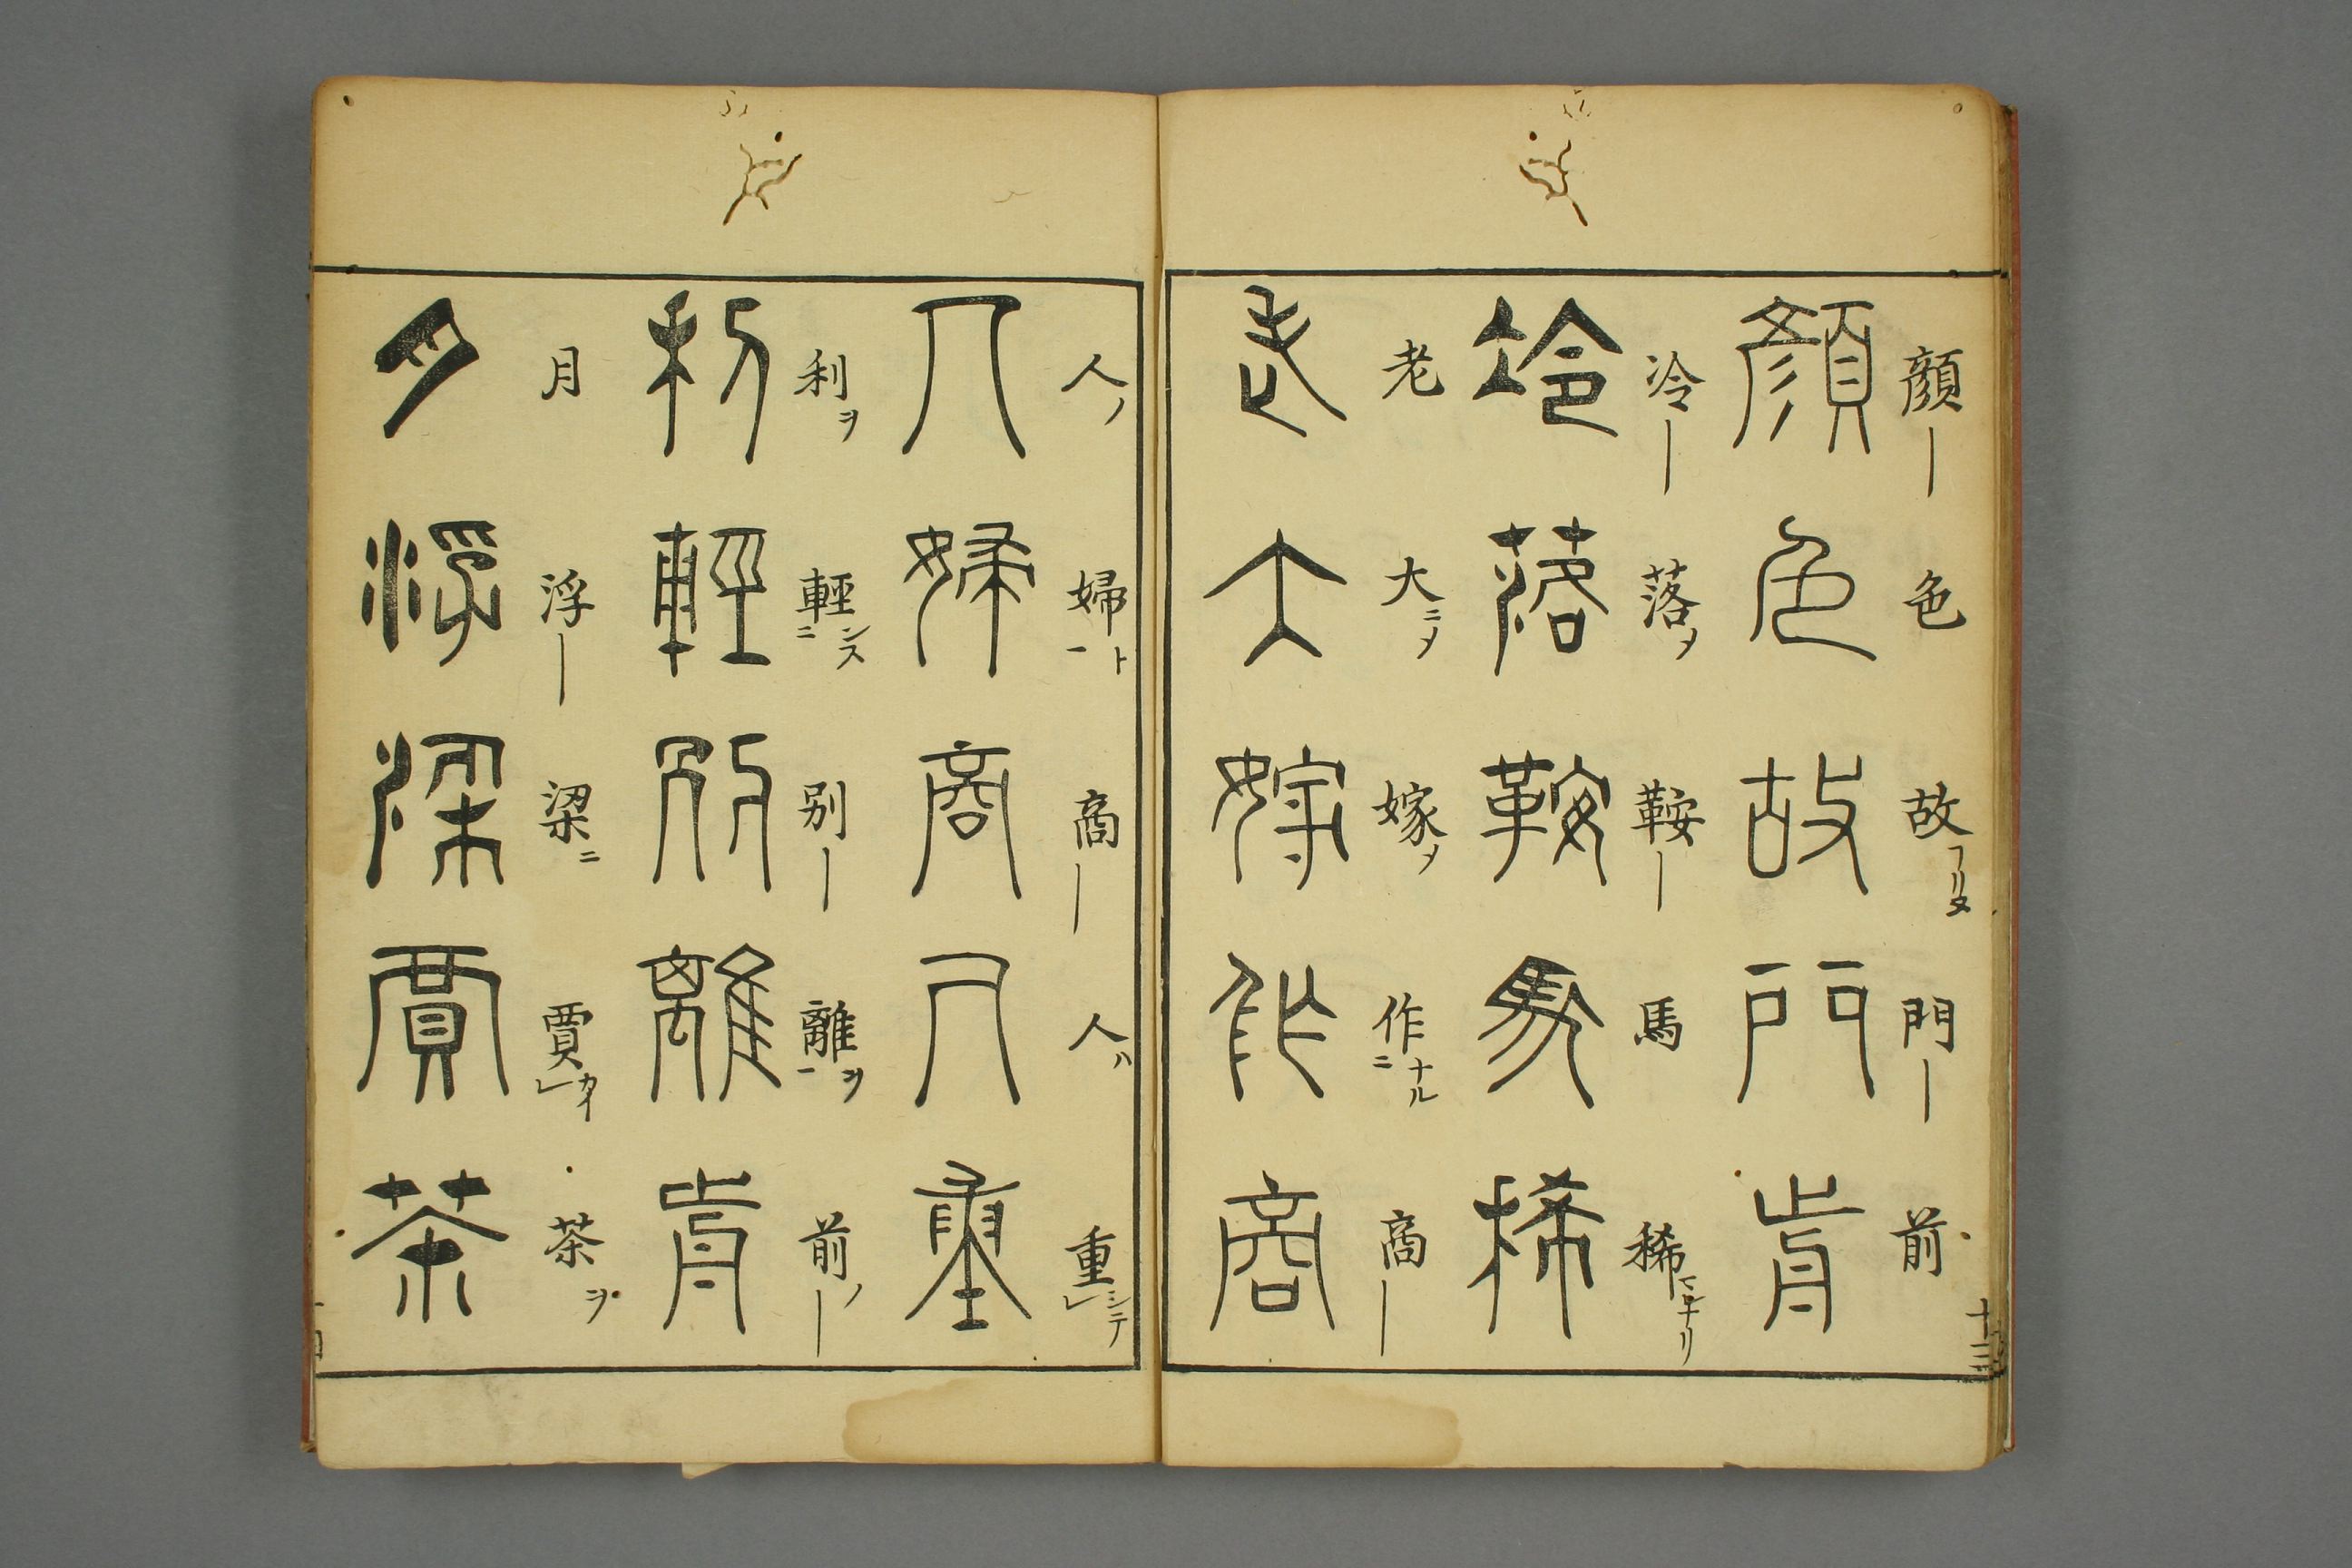 顔｜色故フリヌ門｜前
顔色故門前
冷｜落メ鞍｜馬稀ニナリ
冷落鞍馬稀
老大ニメ嫁メ作ナルニ商｜
老大嫁作商
十三
人ノ婦ト一商｜人ハ重シテレ
人婦商人重
利ヲ輕ンス二別｜離ヲ一前ノ｜
利輕別離前
月浮｜梁ニ賈カイレ茶ヲ
月浮梁賈茶